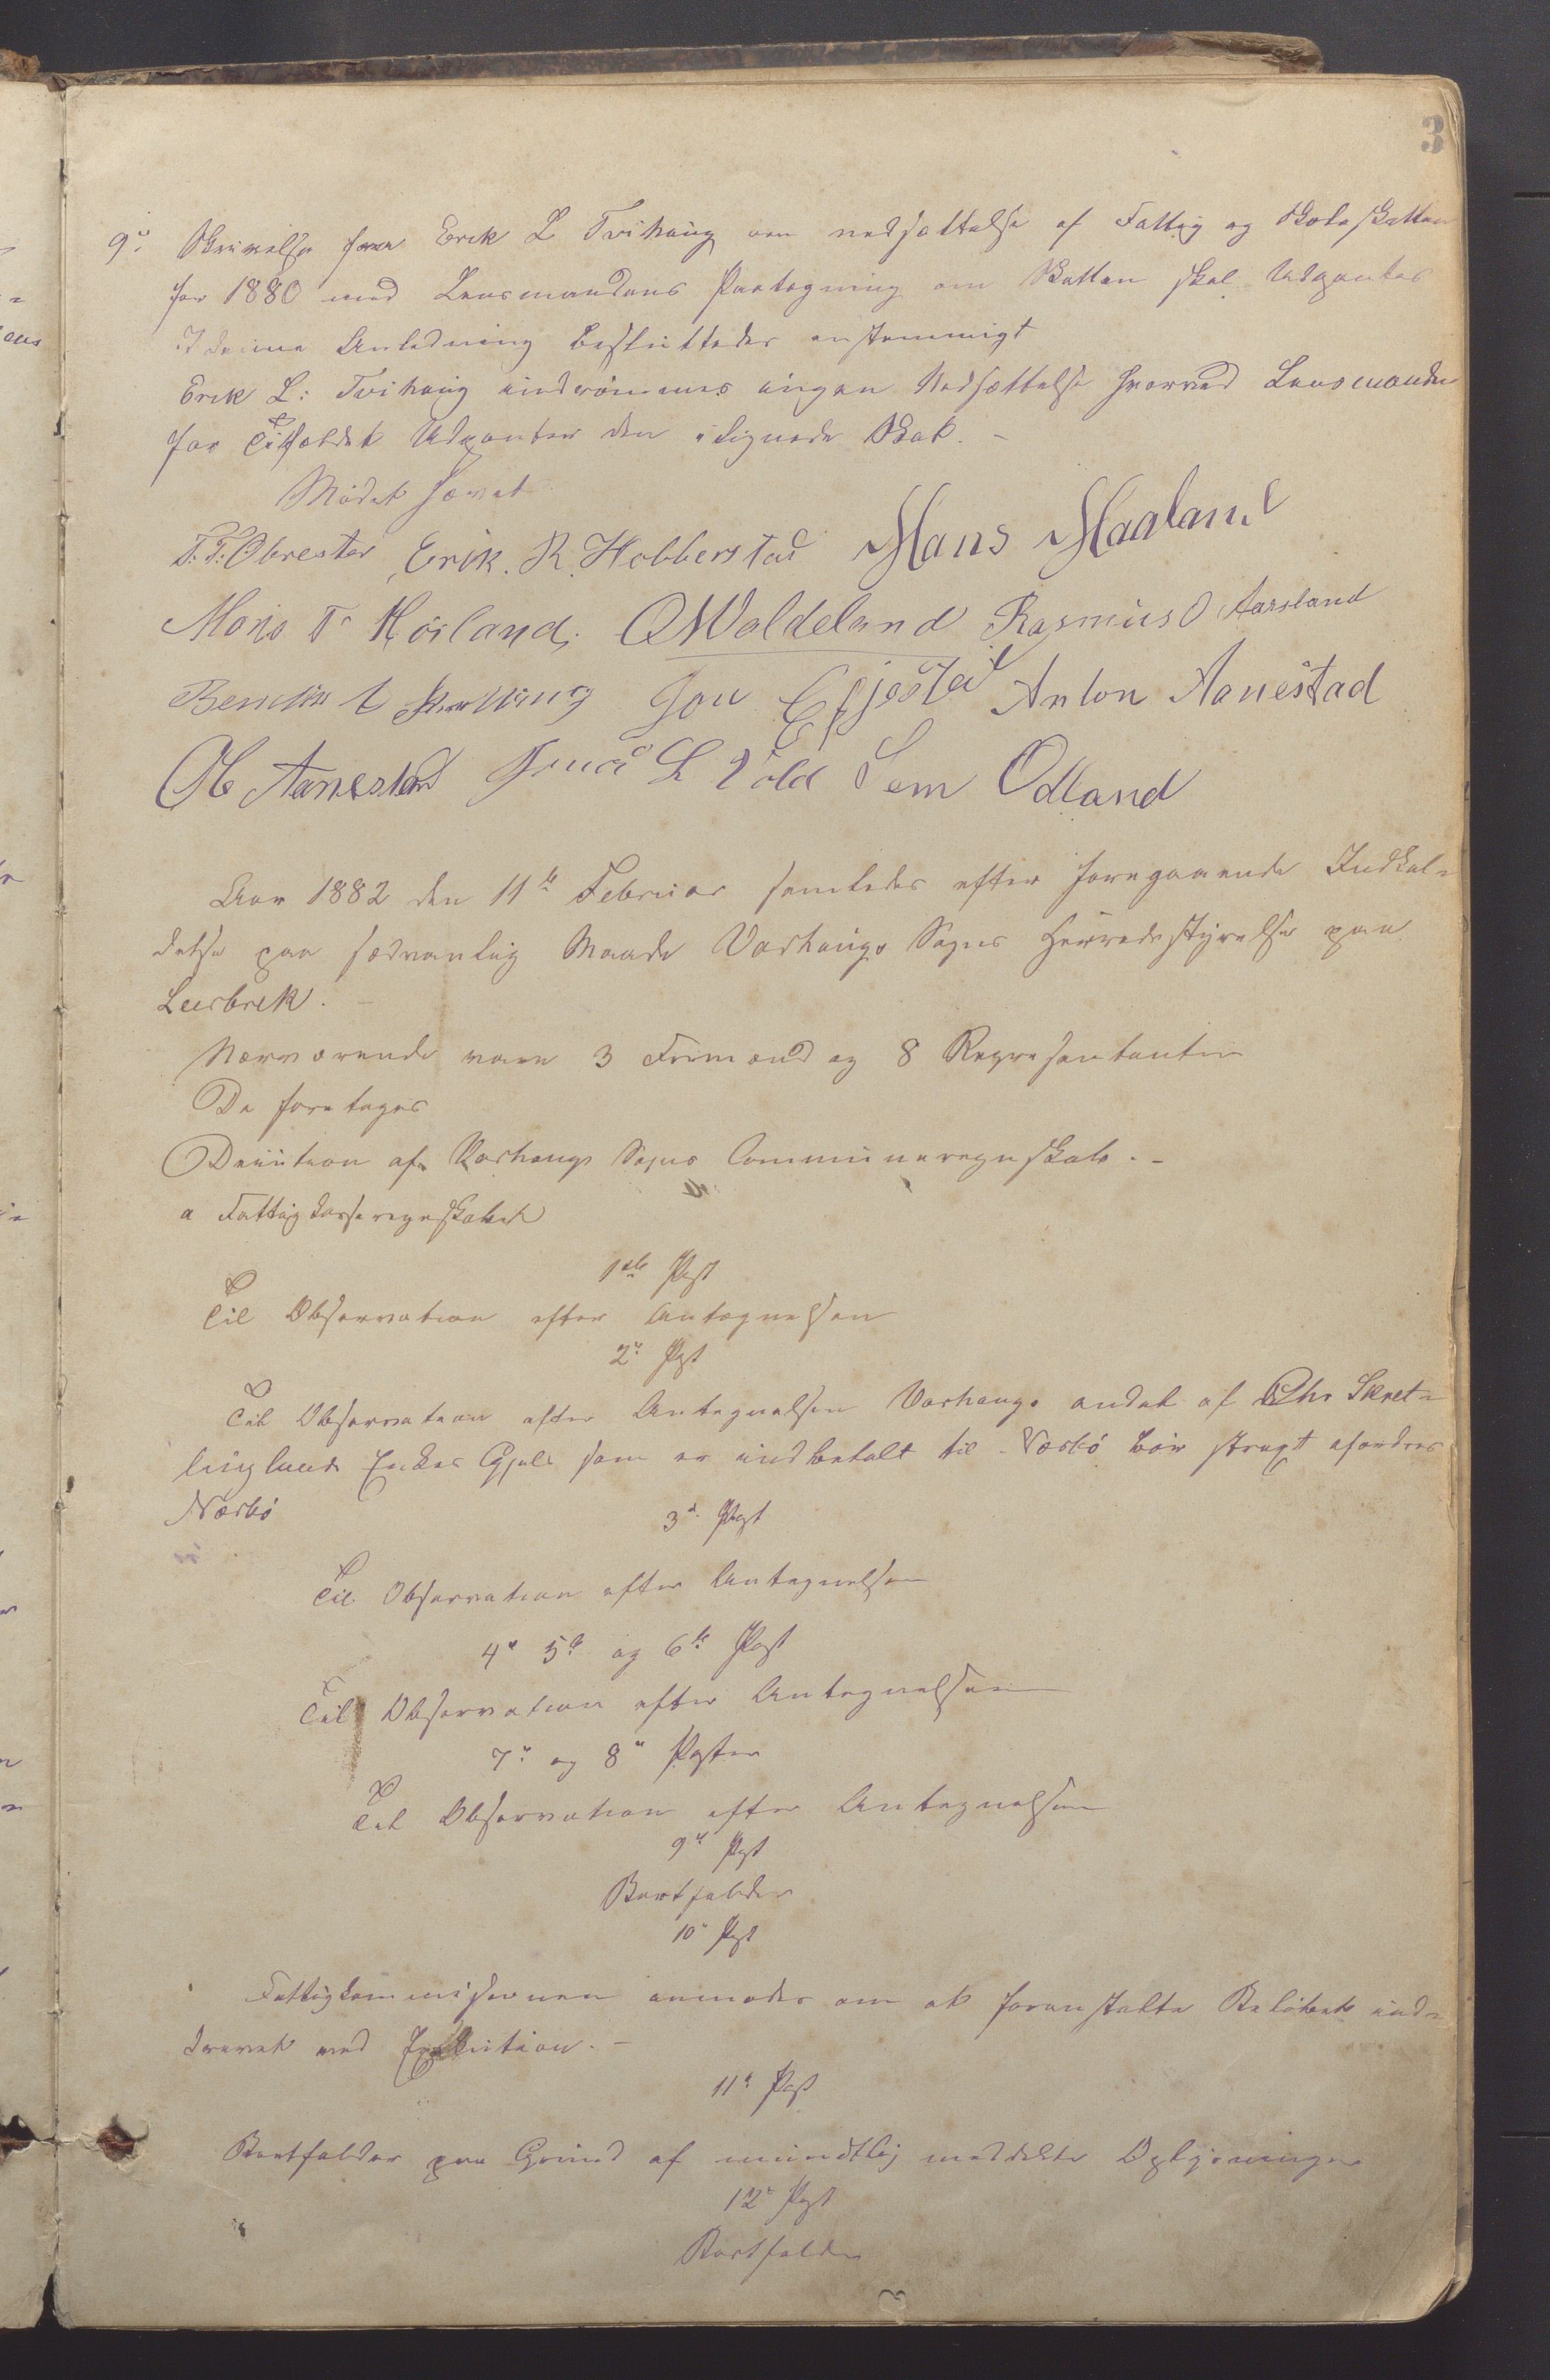 3
9de Skrivelse fra Erik L Tvihaug om nedsættelse af Fattig og Skoleskatten
for 1880 med Lensmandens Paategning om Skatten skal Udpantes
I denne Anledning besluttedes enstemmigt
Erik L: Tvihaug indrømmes ingen Nedsættelse hvorved Lensmanden
for Tilfældet Udpanter den ilignede Skat. -
Mødet hævet
T. T. Obrestad Erik. R. Hobberstad Hans Haaland
Mons T Høiland. O Woldeland Rasmus O Aarsland
Jon Efjestad Anton Aanestad
Ole Aanestad L Vold Sem Odland
Aar 1882 den 11te Februar samledes efter foregaaende Indkal-
delse paa sædvanlig Maade Varhaugs Sogns Herredsstyrelse paa
Leerbrek. -
Nærværende vare 3 Formænd og 8 Repræsentanter
De foretoges
Decision af Varhaugs Sogns Communeregnskab. -
a Fattigkasseregnskabet
1ste Post
Til Observation efter Antegnelsen
2den Post
Til Observation efter Antegnelsen Varhaugs andel af Chr Skret-
linglands Enkes Gjæld som er indbetalt til Nærbø bør stragt afordres
Nærbø
3de Post
Til Observation efter Antegnelsen
4de 5te og 6te Post
Til Observation efter Antegnelsen
7de og 8de Poster
Til Observation efter Antegnelsen
9de Post
Bortfalder
10de Post
Fattigkommisionen anmodes om at foranstalte Beløbet ind-
drevet ved Exekution. -
11te Post
Bortfalder paa Grund af mundtlig meddelte Oplysninger
12te Post
Bortfalder